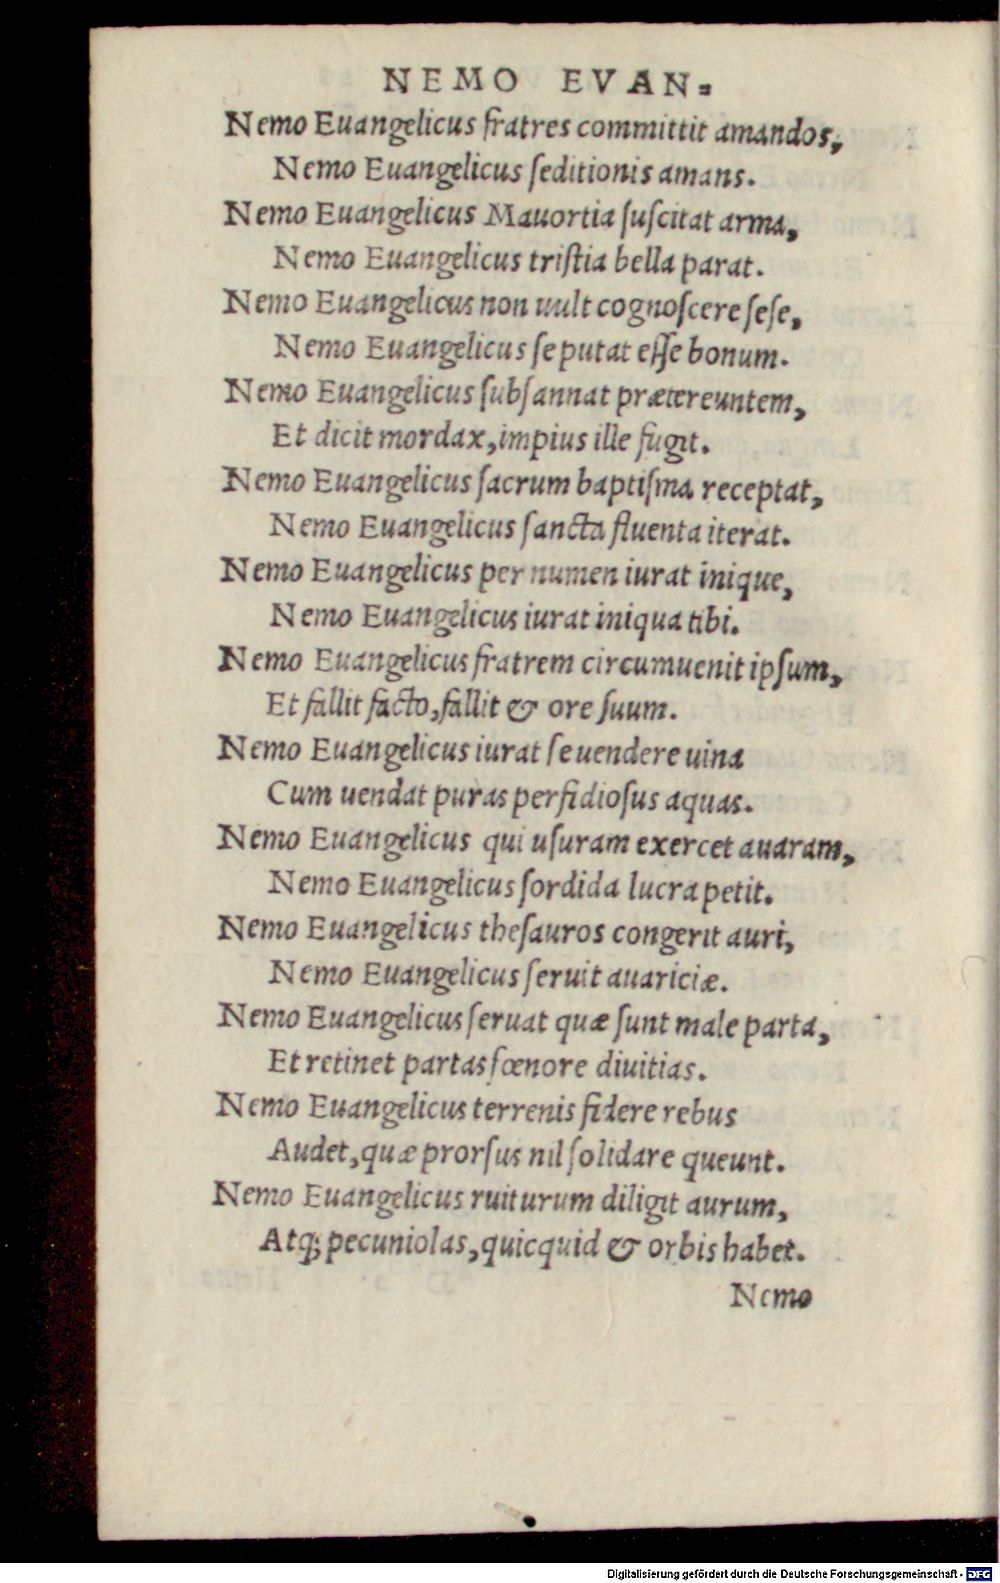 NEMO EVAN=
Nemo Euangelicus fratres committit amandos,
Nemo Euangelicus ſeditionis amans.
Nemo Euangelicus Mauortia ſuſcitat arma,
Nemo Euangelicus triſtia bella parat.
Nemo Euangelicus non uult cognoſcere ſeſe,
Nemo Euangelicus ſe putat eſſe bonum.
Nemo Euangelicus ſubſannat prætereuntem,
Et dicit mordax, impius ille fugit.
Nemo Euangelicus ſacrum baptiſma receptat,
Nemo Euangelicus ſancta fluenta iterat.
Nemo Euangelicus per numen iurat inique,
Nemo Euangelicus iurat iniqua tibi.
Nemo Euangelicus fratrem circumuenit ipſum,
Et fallit facto, fallit & ore ſuum.
Nemo Euangelicus iurat ſe uendere uina
Cum uendat puras perfidioſus aquas.
Nemo Euangelicus qui uſuram exercet auaram,
Nemo Euangelicus ſordida lucra petit.
Nemo Euangelicus theſauros congerit auri,
Nemo Euangelicus ſeruit auariciæ.
Nemo Euangelicus ſeruat quæ ſunt male parta,
Et retinet partas fœnore diuitias.
Nemo Euangelicus terrenis fidere rebus
Audet, quæ prorſus nil ſolidare queunt.
Nemo Euangelicus ruiturum diligit aurum,
Atq; pecuniolas, quicquid & orbis habet.
Nemo
Digitalisierung gefördert durch die Deutsche Forschungsgemeinschaft - DFG